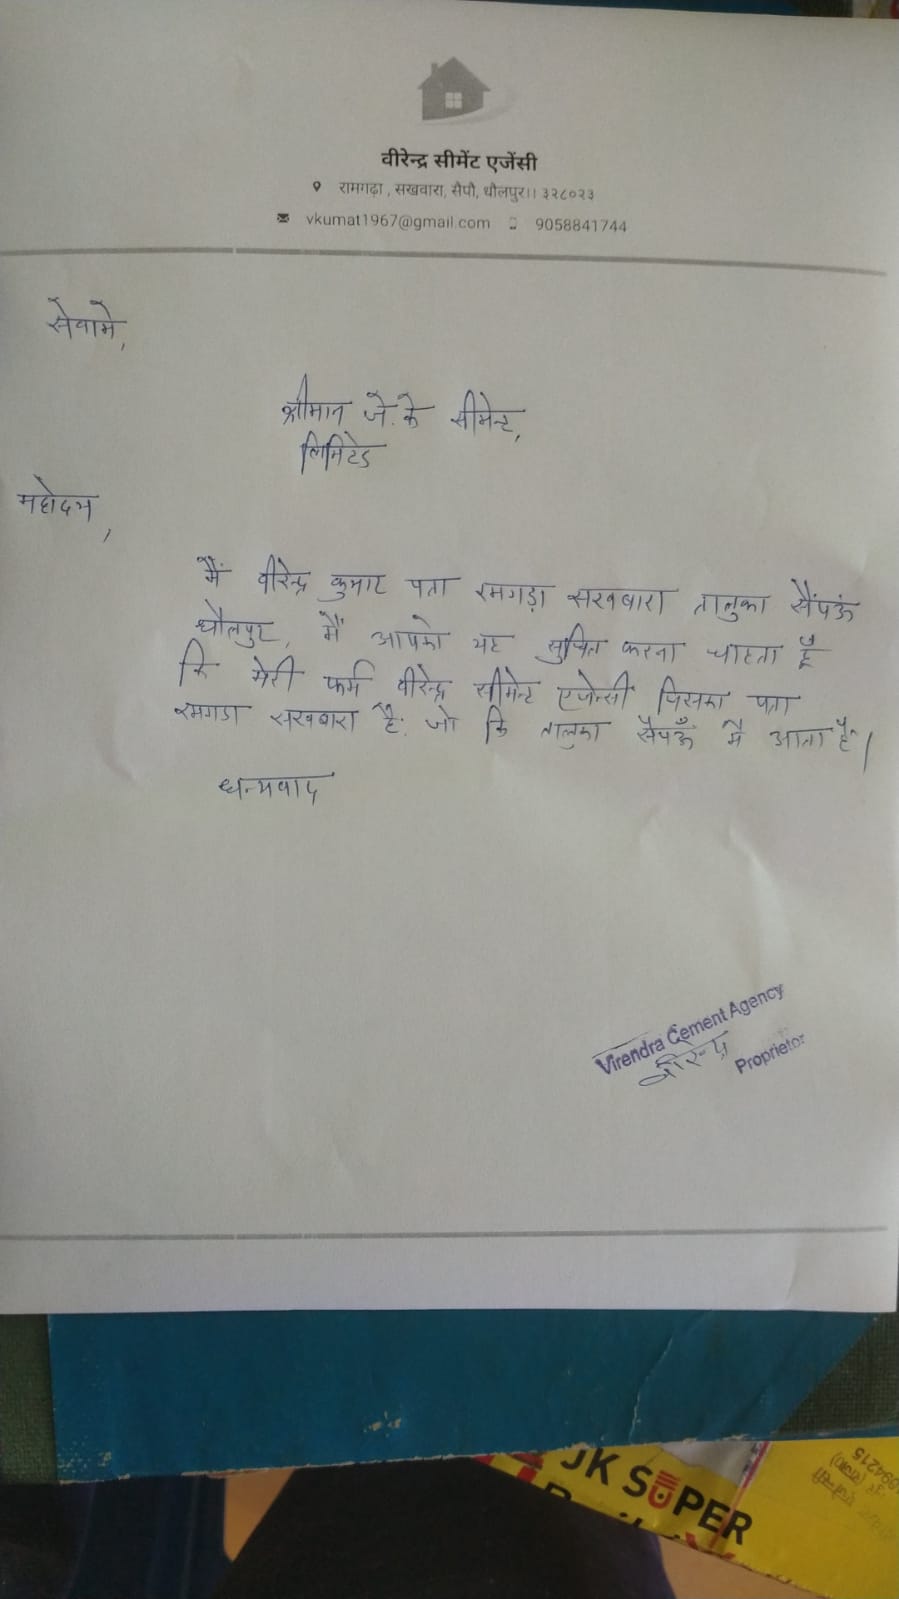 वीरेन्द्र सीमेंट एजेंसी
रामगढ़ा , सखवारा, सैपौ, धौलपुर।। ३२८०२३
vkumat1967@gmail.com 9058841744
सेवामे,
श्रीमान जे.के सीमेन्ट,
लिमिटेड
महोदय,
मैं वीरेन्द्र कुमार पता रमगड़ा सखवारा तालुका सैंपऊ
धौलपुर, मैं आपको यह सुचित करना चाहता हूँ
कि मेरी फर्म वीरेन्द्र सीमेन्ट एजेन्सी जिसका पता
रमगडा सखवारा है. जो कि तालुका सैपऊँ मै आता है।
धन्यवाद
Virendra Cement Agency
वीरेन्द्र
Proprietor
JK SUPER